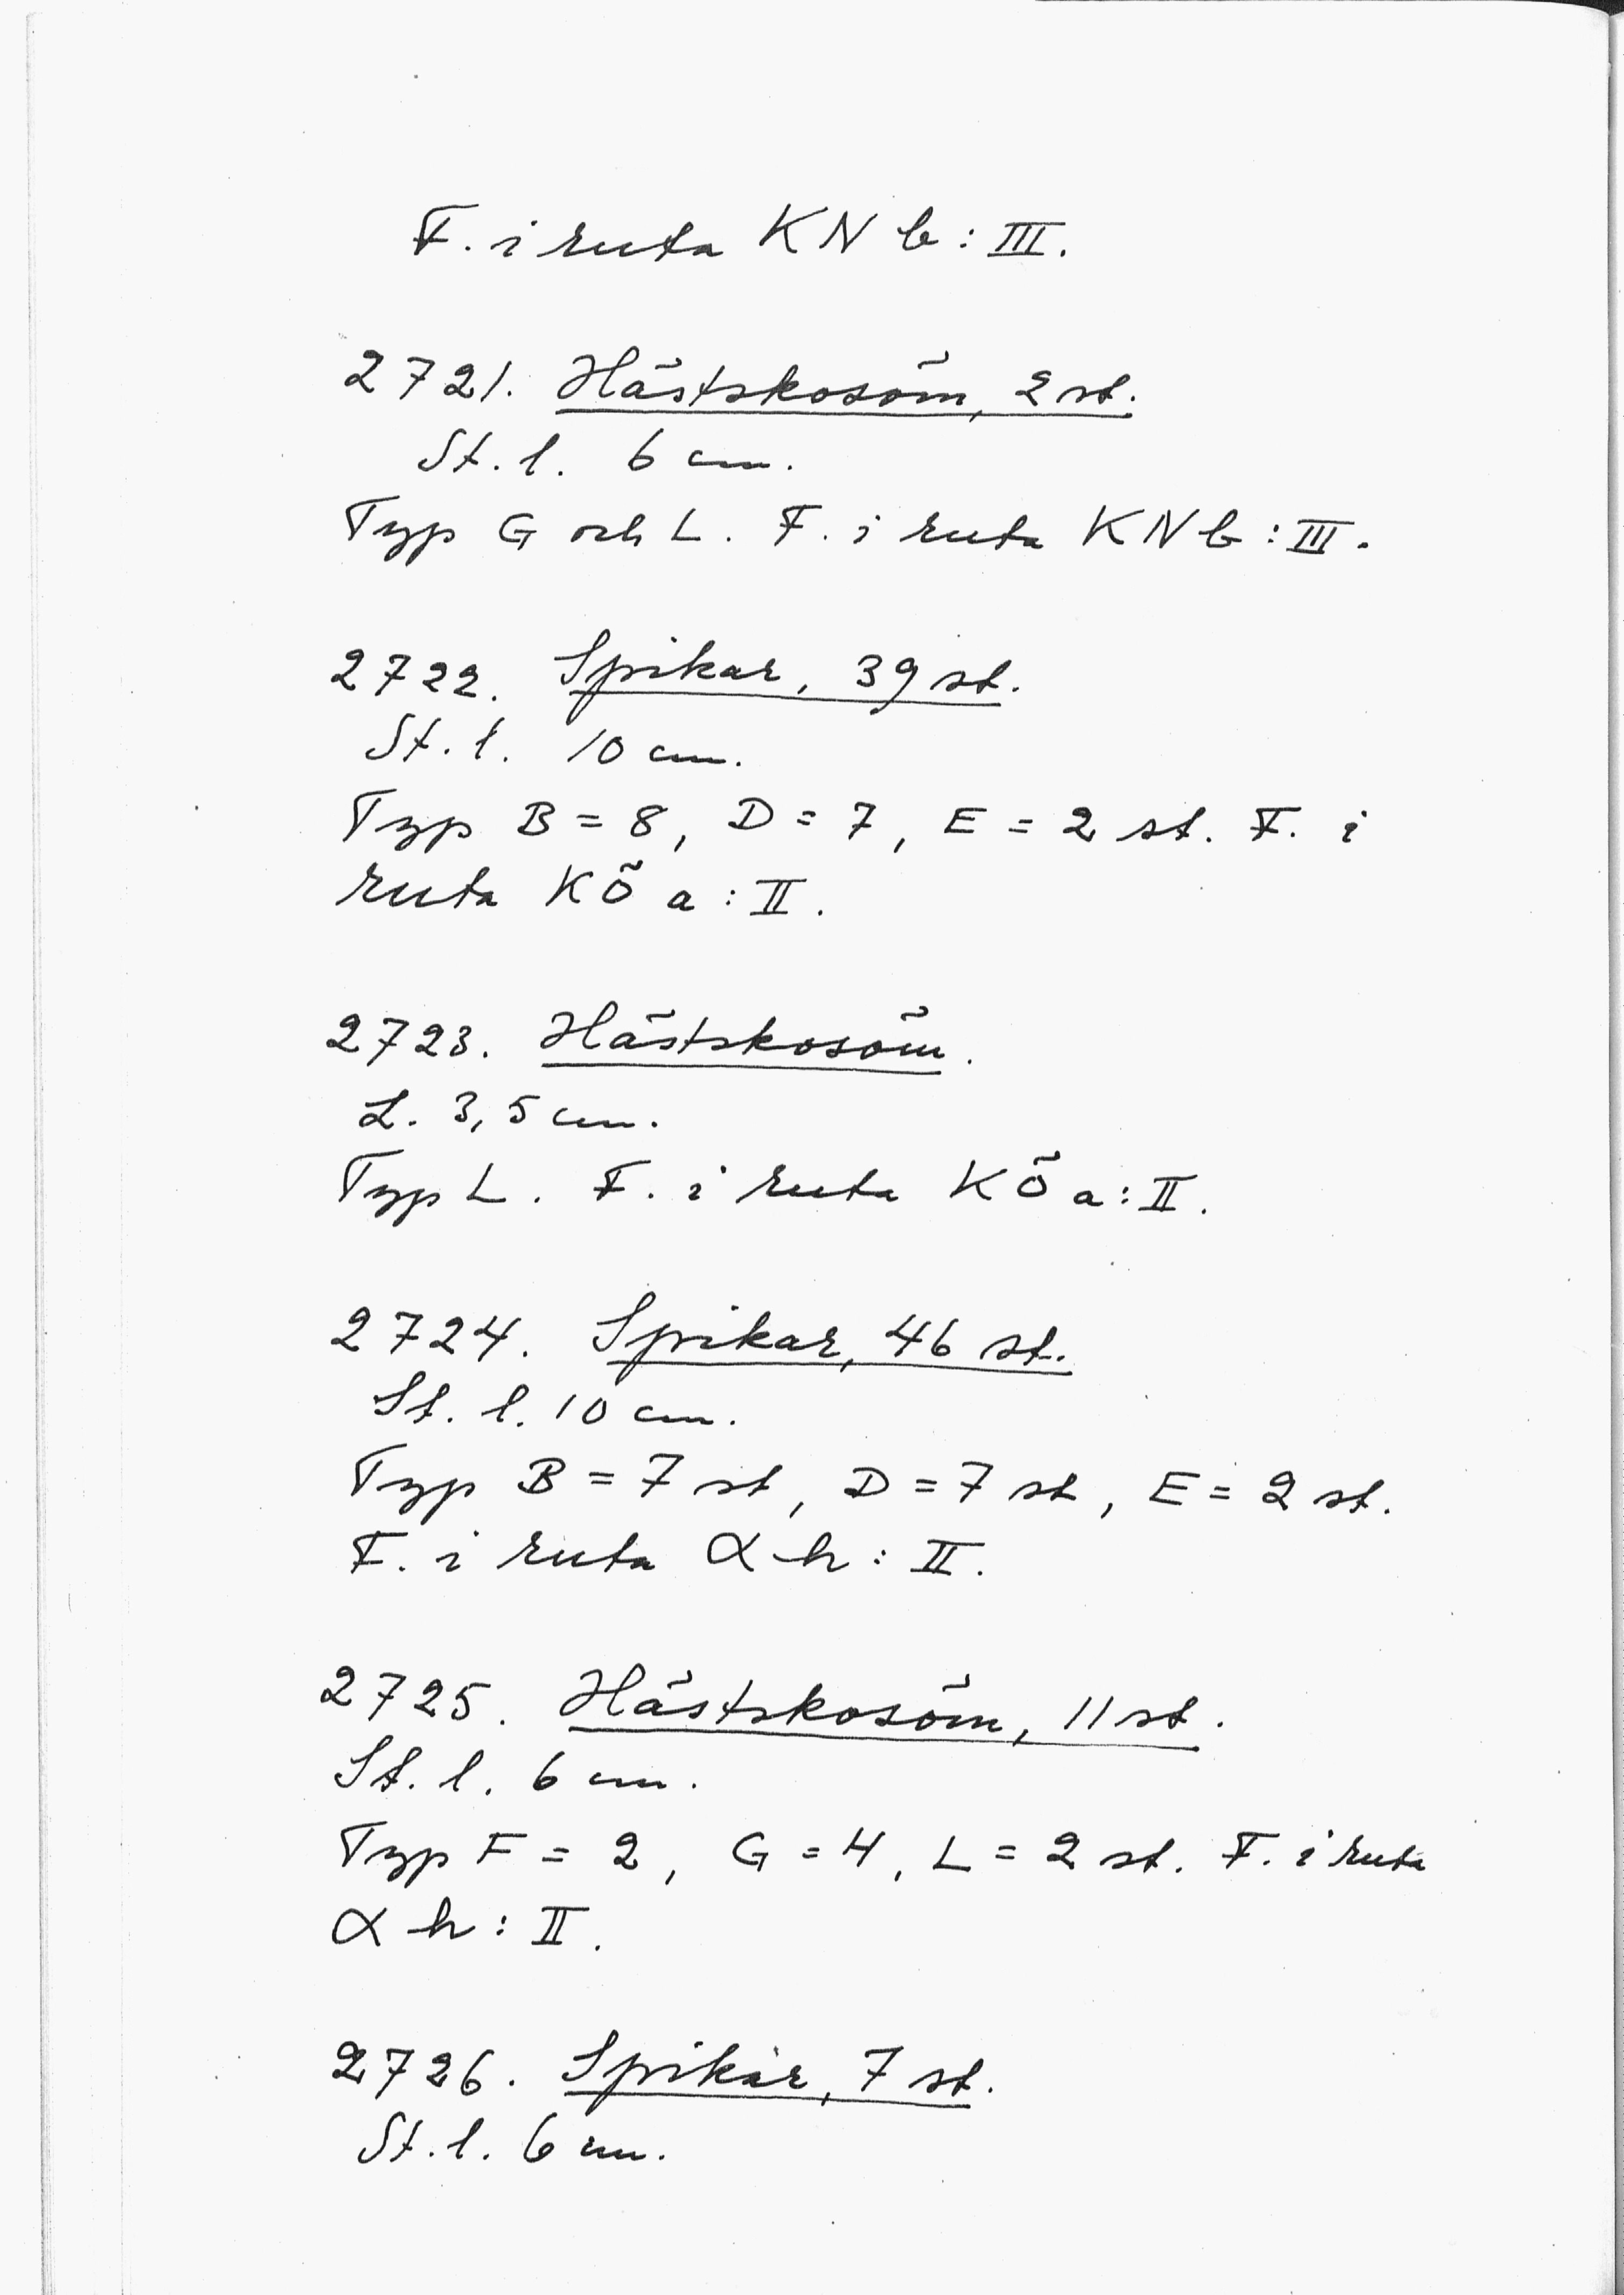 F. i ruta KN b: III.
2721. Hästskosöm, 2 st.
St. l. 6 cm.
Typ G och L. F. i ruta KN b: III.
2722. Spikar, 39 st.
St. l. 10 cm.
Typ B = 8, D = 7, E = 2 st. F. i
ruta KÖ a: II.
2723. Hästskosöm.
L. 3,5 cm.
Typ L. F. i ruta KÖ a: II.
2724. Spikar, 46 st.
St. l. 10 cm.
Typ B = 7 st, D = 7 st, E = 2 st.
F. i ruta α h: II.
2725. Hästskosöm, 11 st.
St. l. 6 cm.
Typ F = 2, G = 4, L = 2 st. F. i ruta
α h: II.
2726. Spikar, 7 st.
St. l. 6 cm.